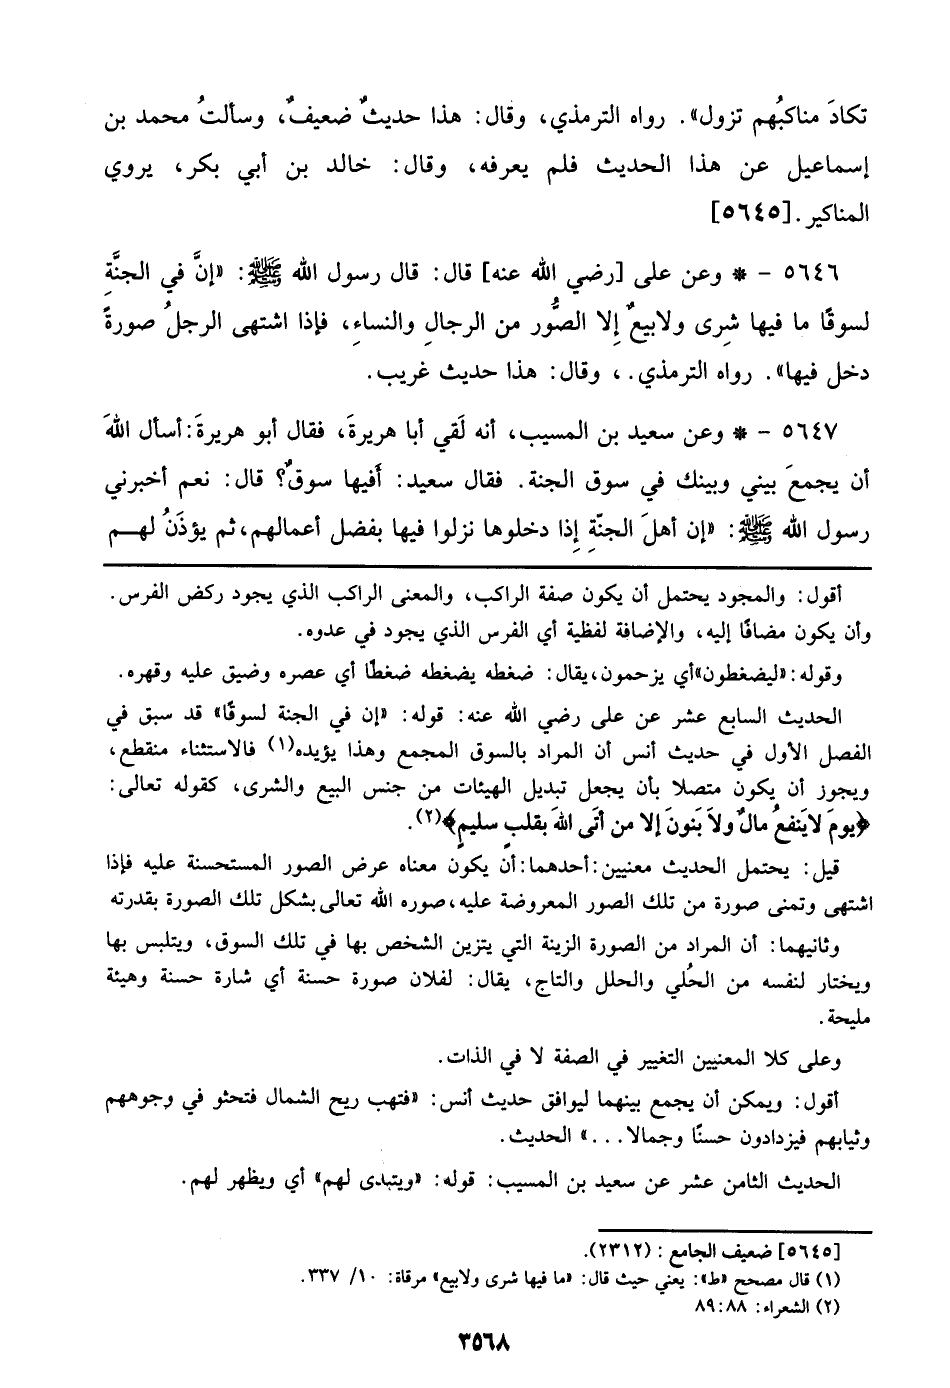 تكادَ مناكبُهم تزول». رواه الترمذي، وقال: هذا حديثٌ ضعيفٌ، وسألتُ محمد بن
إسماعيل عن هذا الحديث فلم يعرفه، وقال: خالد بن أبي بكر، يروي
المناكير. [٥٦٤٥]
٥٦٤٦ – * وعن على [رضي الله عنه] قال: قال رسول الله ﷺ: «إنَّ في الجنَّةِ
لسوقًا ما فيها شِرى ولابيعٌ إلا الصُّور من الرجالِ والنساءِ، فإذا اشتهى الرجلُ صورةً
دخل فيها». رواه الترمذي.، وقال: هذا حديث غريب.
٥٦٤٧ – * وعن سعيد بن المسيب، أنه لَقي أبا هريرةَ، فقال أبو هريرةَ: أسأل اللهَ
أن يجمعَ بيني وبينك في سوق الجنة. فقال سعيد: أَفيها سوقٌ؟ قال: نعم أخبرني
رسول الله ﷺ: «إن أهلَ الجنّةِ إِذا دخلوها نزلوا فيها بفضل أعمالهم، ثم يؤذَنُ لهـم
أقول: والمجود يحتمل أن يكون صفة الراكب، والمعنى الراكب الذي يجود ركض الفرس.
وأن يكون مضافًا إليه، والإضافة لفظية أي الفرس الذي يجود في عدوه.
وقوله: «ليضغطون» أي يزحمون، يقال: ضغطه يضغطه ضغطًا أي عصره وضيق عليه وقهره.
الحديث السابع عشر عن على رضي الله عنه: قوله: «إن في الجنة لسوقًا» قد سبق في
الفصل الأول في حديث أنس أن المراد بالسوق المجمع وهذا يؤيده(١) فالاستثناء منقطع،
ويجوز أن يكون متصلا بأن يجعل تبديل الهيئات من جنس البيع والشرى، كقوله تعالى:
﴿يومَ لاَينفعُ مالٌ ولاَ بَنونَ إلا من أتَى اللهَ بقلبٍ سليمٍ﴾(٢).
قيل: يحتمل الحديث معنيين: أحدهما: أن يكون معناه عرض الصور المستحسنة عليه فإذا
اشتهى وتمنى صورة من تلك الصور المعروضة عليه، صوره الله تعالى بشكل تلك الصورة بقدرته
وثانيهما: أن المراد من الصورة الزينة التي يتزين الشخص بها في تلك السوق، ويتلبس بها
ويختار لنفسه من الحُلي والحلل والتاج، يقال: لفلان صورة حسنة أي شارة حسنة وهيئة
مليحة.
وعلى كلا المعنيين التغيير في الصفة لا في الذات.
أقول: ويمكن أن يجمع بينهما ليوافق حديث أنس: «فتهب ريح الشمال فتحثو في وجوههم
وثيابهم فيزدادون حسنًا وجمالا...» الحديث.
الحديث الثامن عشر عن سعيد بن المسيب: قوله: «ويتبدى لهم» أي ويظهر لهم.
[٥٦٤٥] ضعيف الجامع: (٢٣١٢).
(١) قال مصحح «ط»: يعني حيث قال: «ما فيها شرى ولابيع» مرقاة: ١٠/ ٣٣٧.
(٢) الشعراء: ٨٨:٨٩
٣٥٦٨